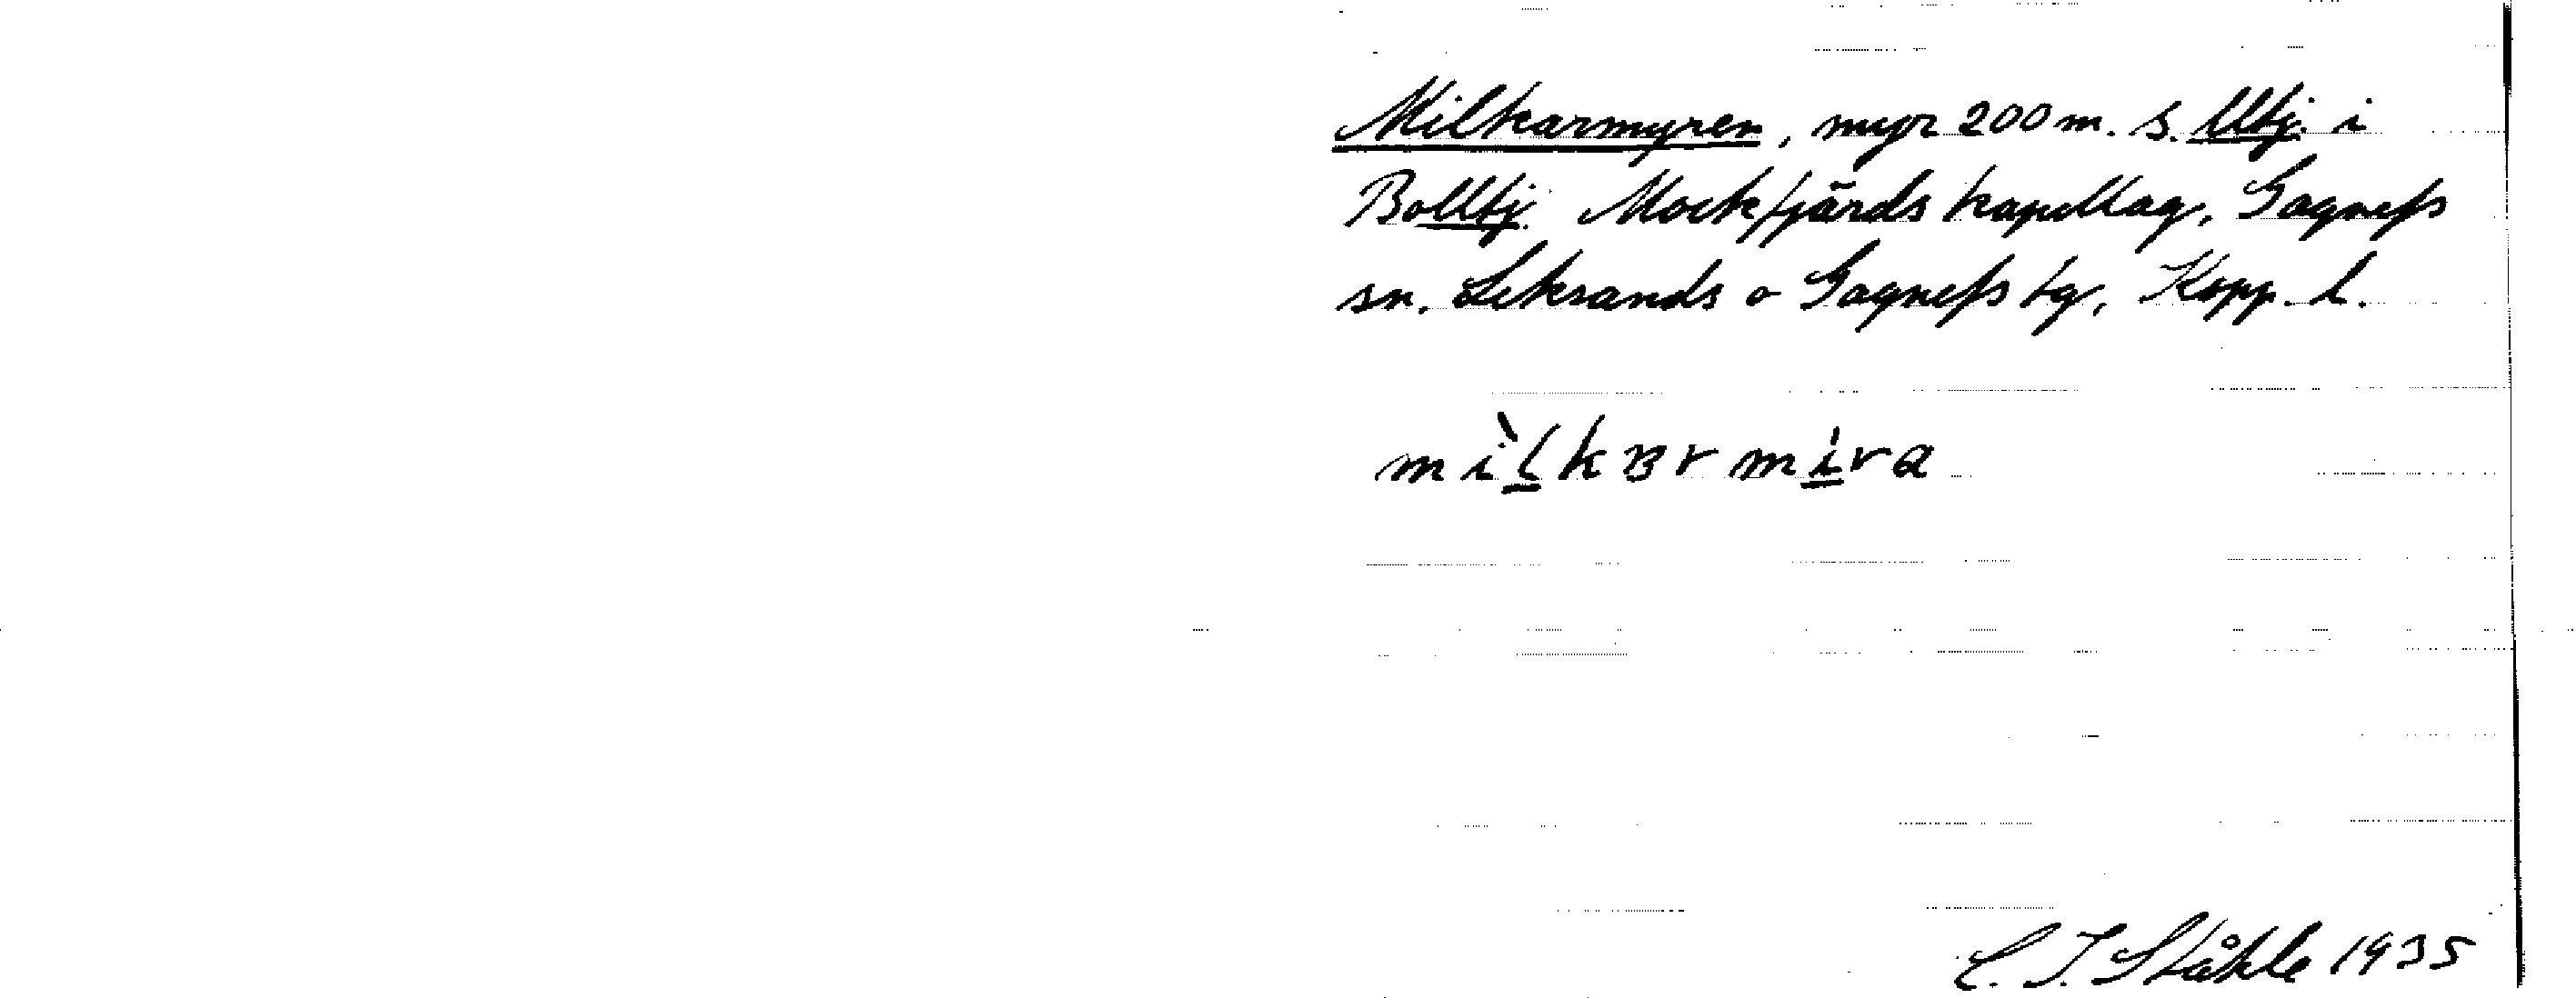 Milkarmyren, myr 200 m. s. Ulbj. i
Bollbj. Mockfjärds kapellag, Gagnefs
sn. Leksands o Gagnefs tg, Kopp. l.
mìḻkʙrmi̱ra
C. I. Ståhle 1935